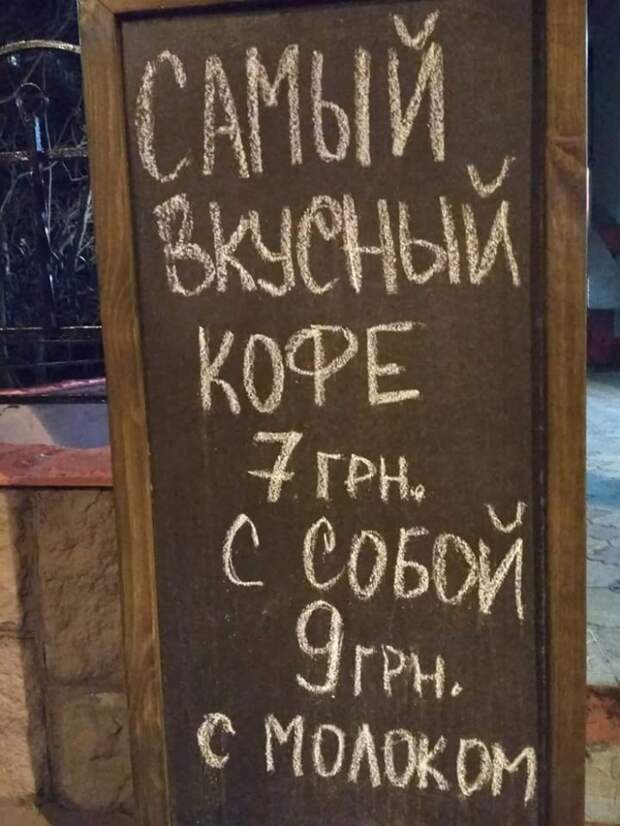 САМЫЙ
ВКУСНЫЙ
КОФЕ
7 ГРН.
С СОБОЙ
9 ГРН.
С МОЛОКОМ